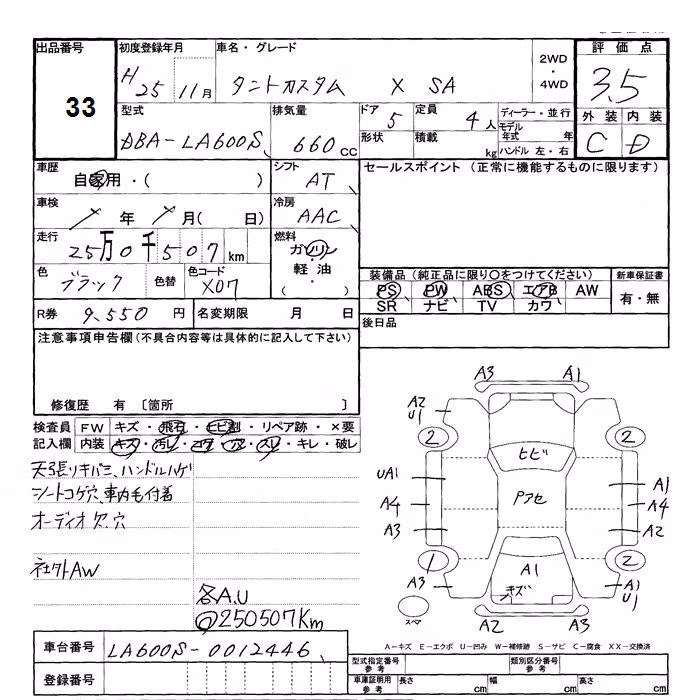 出品番号
33
初度登録年月
H 25 11月
車名・グレード
タントカスタム X SA
2WD
・
4WD
評価点
3.5
型式
DBA-LA600S
排気量
660cc
ドア
5
定員
4人
形状
積載
kg
ディーラー・並行
モデル年式 年
ハンドル 左・右
外装 内装
C D
車歴
自家用・( )
シフト
AT
セールスポイント (正常に機能するものに限ります)
車検
年 月( 日)
冷房
AAC
走行
25万0千507km
燃料
ガソリン
軽油
( ・ )
色
ブラック
色替
色コード
X07
装備品(純正品に限り○をつけてください)
新車保証書
PS PW ABS エアB AW
SR ナビ TV カワ
有・無
R券 9,550円
名変期限 月 日
後日品
注意事項申告欄(不具合内容等は具体的に記入して下さい)
修復歴 有 〔箇所 〕
検査員
記入欄
FW キズ・飛石・ヒビ割・リペア跡・×要
内装 キズ・汚レ・コゲ・穴・スレ・キレ・破レ
天張リキバミ、ハンドルハゲ
シートコゲ穴、車内毛付着
オーディオ欠.穴
社外AW
各A.U
@250507Km
車台番号 LA600S-0012446
登録番号
A3 A1
A2
U1
2 2
ヒビ
UA1 A1
Pアセ
A4 A4
A3 A2
1 2
A1
キズ
A3 A1
U1
スペア
A2 A3
A-キズ E-エクボ U-凹み W-補修跡 S-サビ C-腐食 XX-交換済
型式指定番号
参考
類別区分番号
参考
車庫証明用
参考
長さ cm 幅 cm 高さ cm